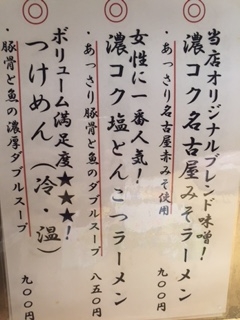 当店オリジナルブレンド味噌！
◎濃コク名古屋みそラーメン
・あっさり名古屋赤みそ使用
九〇〇円
女性に一番人気！
◎濃コク塩とんこつラーメン
・あっさり豚骨と魚のダブルスープ
八五〇円
ボリューム満足度★★★！
◎つけめん（冷・温）
・豚骨と魚の濃厚ダブルスープ
九〇〇円